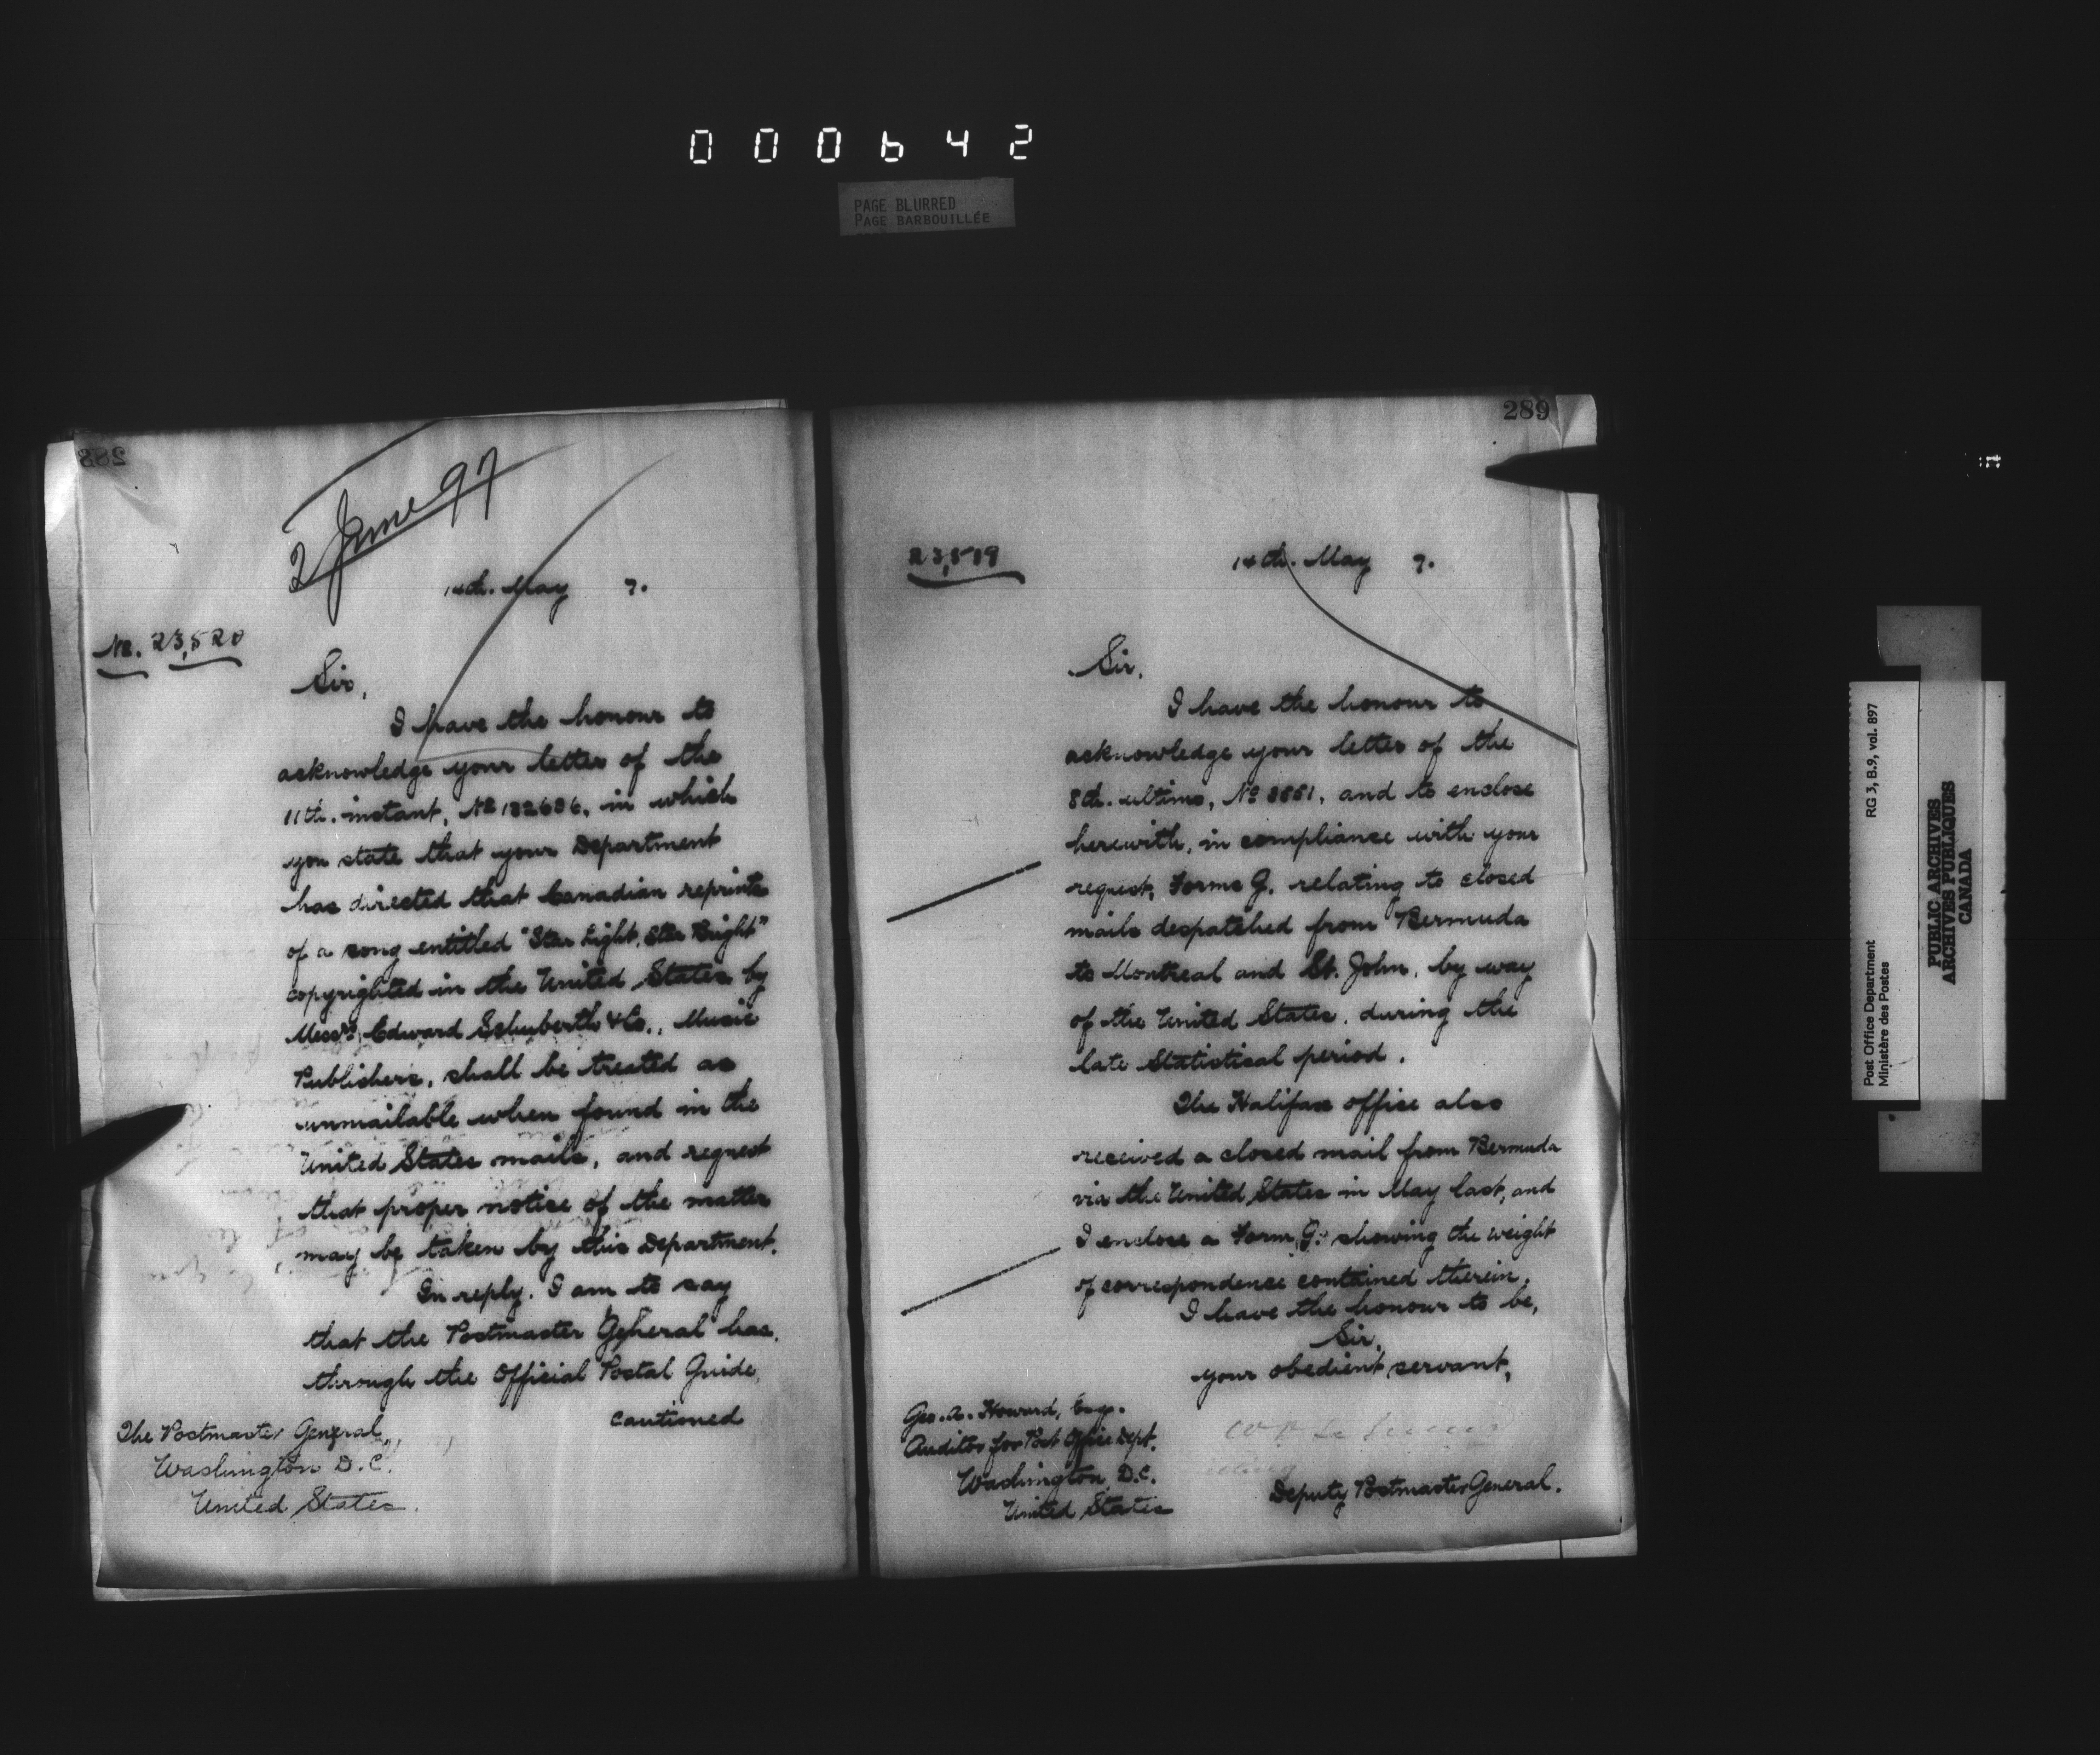 000642
PAGE BLURRED
PAGE BARBOUILLÉE
288
2 June 97
14th. May 7.
No. 23,520
Sir,
I have the honour to
acknowledge your letter of the
11th. instant, No 132686, in which
you state that your Department
has directed that Canadian reprints
of a song entitled "Star Light, Star Bright"
copyrighted in the United States by
Messrs. Edward Schuberth & Co., Music
Publishers, shall be treated as
unmailable when found in the
United States mails, and request
that proper notice of the matter
may be taken by this Department.
In reply, I am to say
that the Postmaster General has,
through the Official Postal Guide,
cautioned
The Postmaster General,
Washington D.C.
United States.
289
23,519
14th. May 7.
Sir,
I have the honour to
acknowledge your letter of the
8th. ultimo, No 8881, and to enclose
herewith, in compliance with your
request, Forms G. relating to closed
mails despatched from Bermuda
to Montreal and St. John, by way
of the United States, during the
late Statistical period.
The Halifax office also
received a closed mail from Bermuda
via the United States in May last, and
I enclose a Form G. showing the weight
of correspondence contained therein.
I have the honour to be,
Sir,
your obedient servant,
Deputy Postmaster General.
Geo. A. Howard, Esq.
Auditor for Post Office Dept.
Washington, D.C.
United States
Post Office Department RG 3, B.9, vol. 897
Ministère des Postes
PUBLIC ARCHIVES
ARCHIVES PUBLIQUES
CANADA